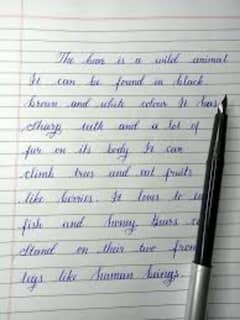 The bear is a wild animal
It can be found in black
brown and white colour It has
sharp teeth and a lot of
fur on its body It can
climb trees and eat fruits
like berries. It loves to
fish and honey. Bears
stand on their two
legs like human beings.